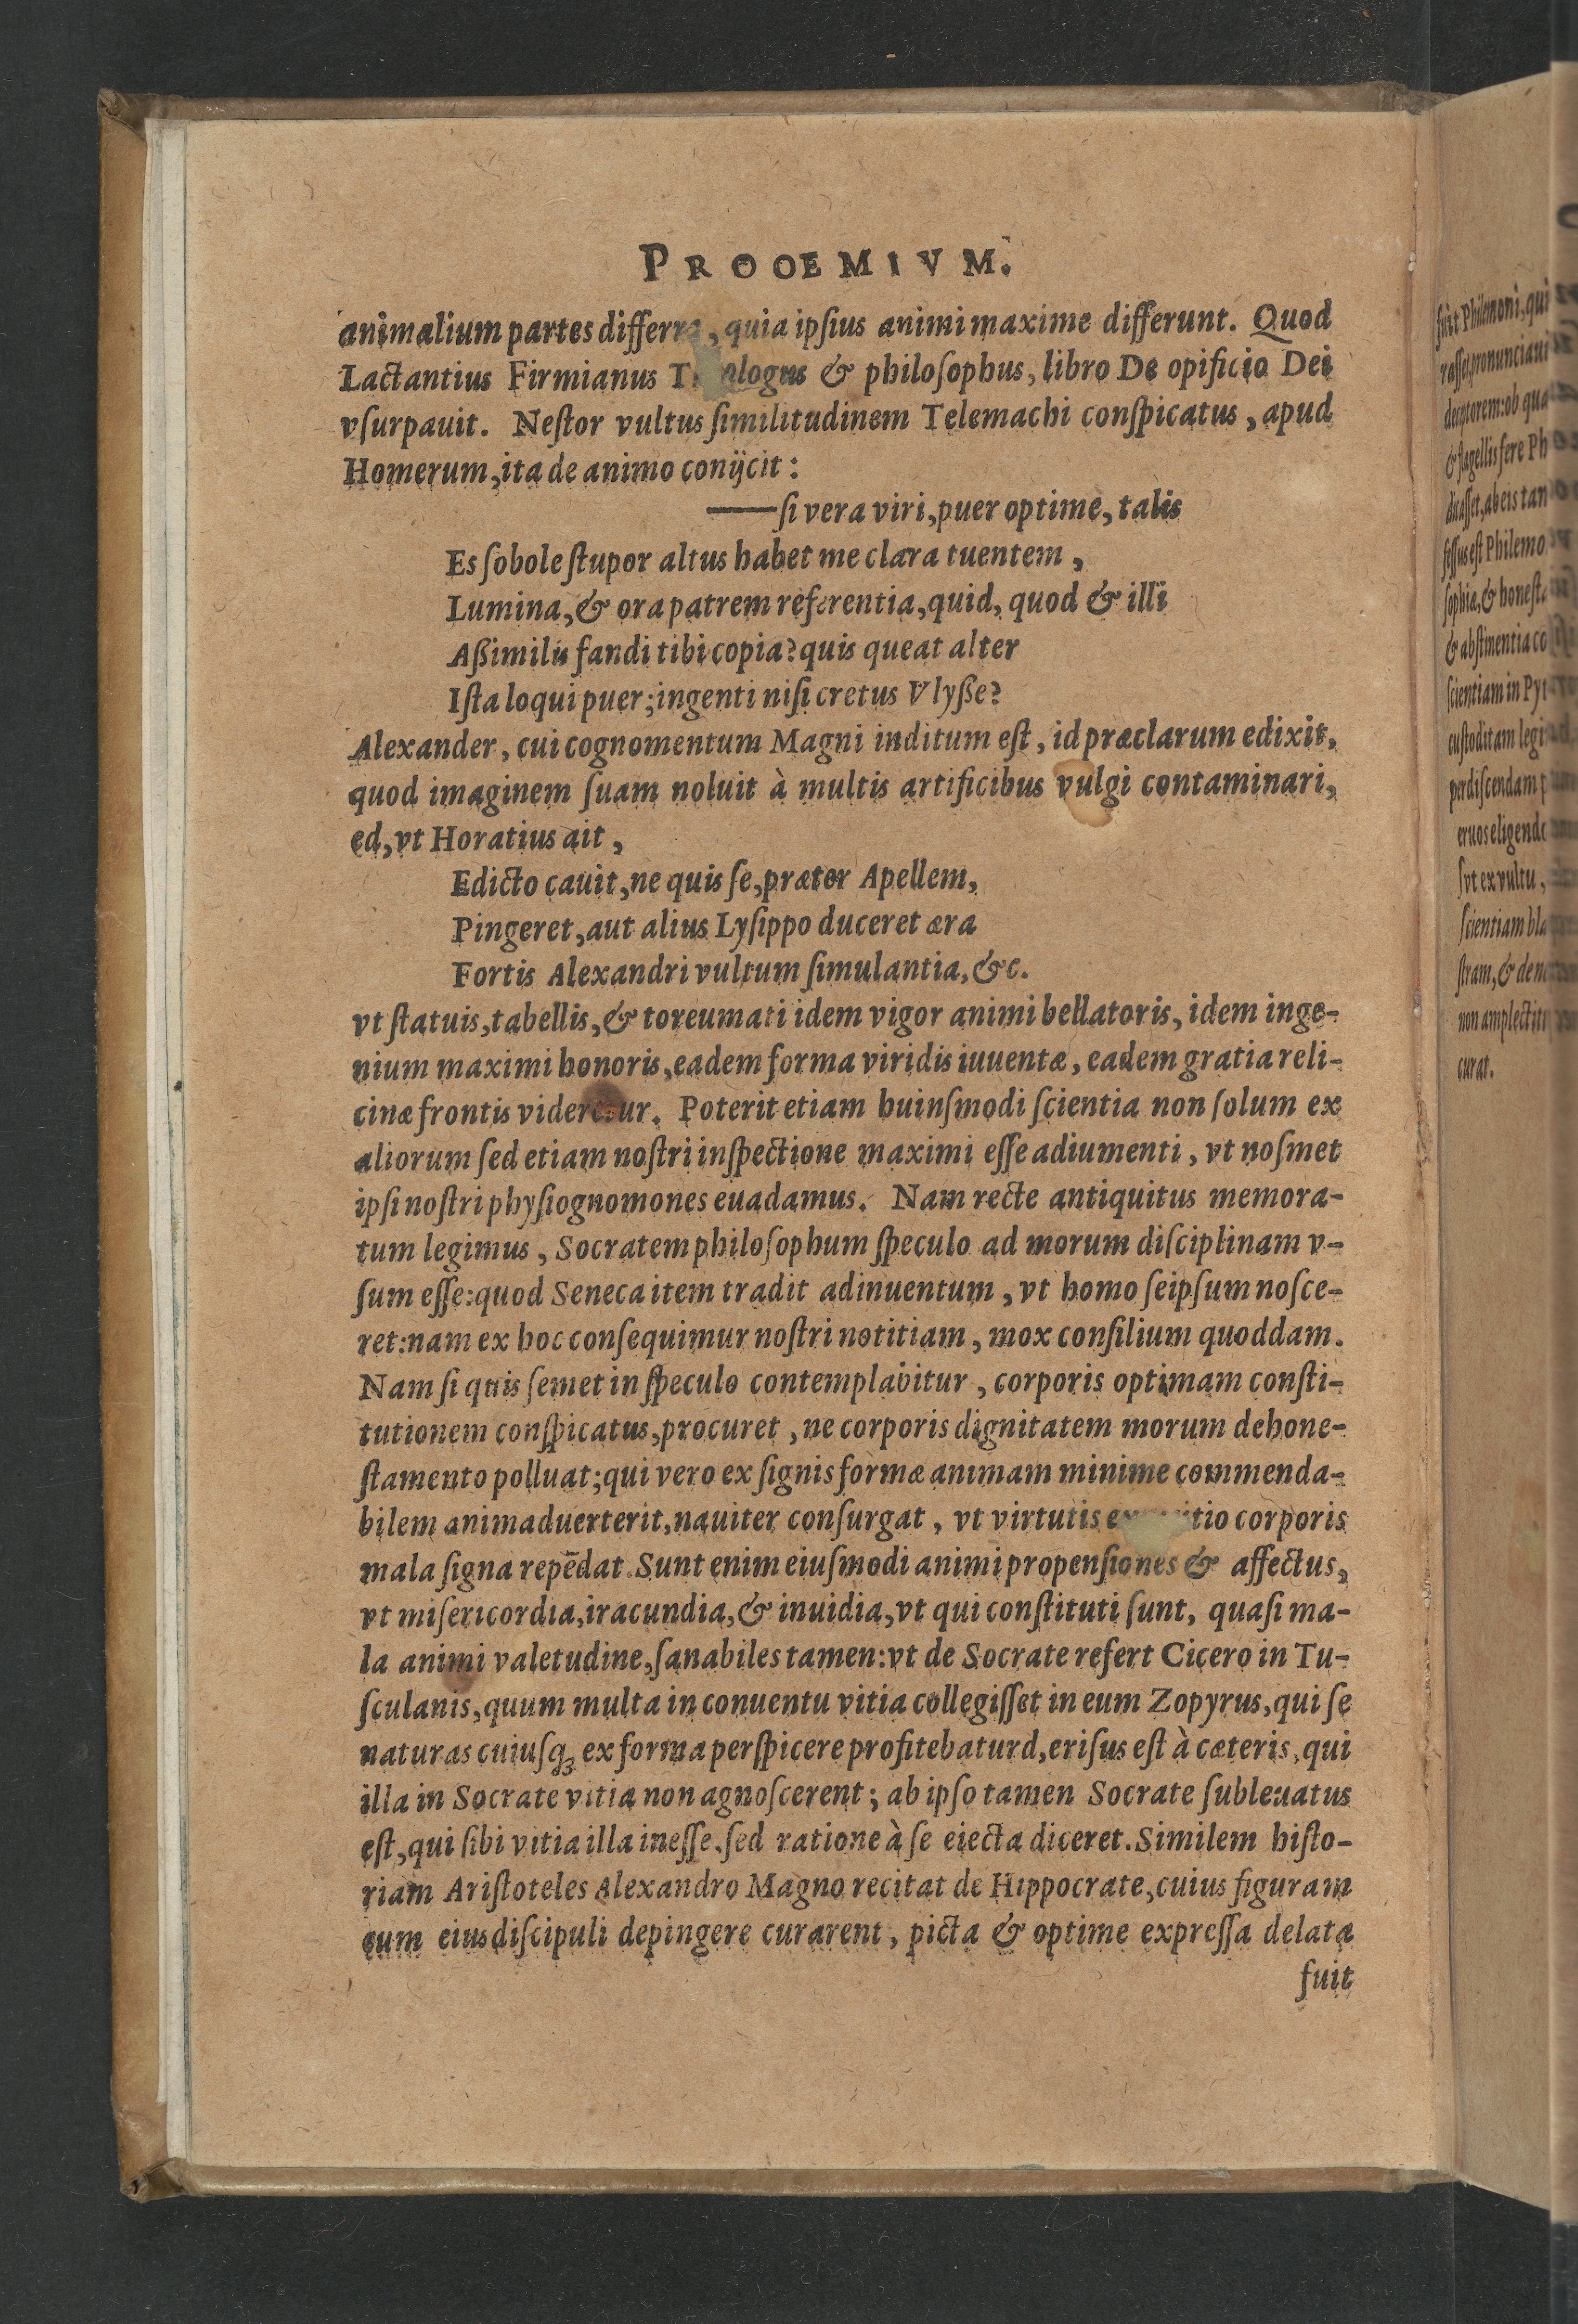 PROOEMIVM.
animalium partes differre, quia ipſius animi maxime differunt. Quod
Lactantius Firmianus & philoſophus, libro De opificio Dei
vſurpauit. Neſtor vultus ſimilitudinem Telemachi conſpicatus, apud
Homerum, ita de animo conijcit:
——ſi vera viri, puer optime, talis
Es ſobole ſtupor altus habet me clara tuentem,
Lumina, & ora patrem referentia, quid, quod & illi
Aßimilis fandi tibi copia? quis queat alter
Iſta loqui puer; ingenti niſi cretus Vlyße?
Alexander, cui cognomentum Magni inditum eſt, id præclarum edixit,
quod imaginem ſuam noluit à multis artificibus vulgi contaminari,
ed, vt Horatius ait,
Edicto cauit, ne quis ſe, præter Apellem,
Pingeret, aut alius Lyſippo duceret æra
Fortis Alexandri vultum ſimulantia, &c.
vt ſtatuis, tabellis, & toreumati idem vigor animi bellatoris, idem inge-
nium maximi honoris, eadem forma viridis iuuentæ, eadem gratia reli-
cinæ frontis videretur. Poterit etiam huinſmodi ſcientia non ſolum ex
aliorum ſed etiam noſtri inſpectione maximi eſſe adiumenti, vt noſmet
ipſi noſtri phyſiognomones euadamus. Nam recte antiquitus memora-
tum legimus, Socratem philoſophum ſpeculo ad morum diſciplinam v-
ſum eſſe: quod Seneca item tradit adinuentum, vt homo ſeipſum noſce-
ret: nam ex hoc conſequimur noſtri notitiam, mox conſilium quoddam.
Nam ſi quis ſemet in ſpeculo contemplabitur, corporis optimam conſti-
tutionem conſpicatus, procuret, ne corporis dignitatem morum dehone-
ſtamento polluat; qui vero ex ſignis formæ animam minime commenda-
bilem animaduerterit, nauiter conſurgat, vt virtutis corporis
mala ſigna repēdat. Sunt enim eiuſmodi animi propenſiones & affectus,
vt miſericordia, iracundia, & inuidia, vt qui conſtituti ſunt, quaſi ma-
la animi valetudine, ſanabiles tamen: vt de Socrate refert Cicero in Tu-
ſculanis, quum multa in conuentu vitia collegiſſet in eum Zopyrus, qui ſe
naturas cuiuſqꝫ ex forma perſpicere profitebaturd, eriſus eſt à cæteris, qui
illa in Socrate vitia non agnoſcerent; ab ipſo tamen Socrate ſubleuatus
eſt, qui ſibi vitia illa ineſſe, ſed ratione à ſe eiecta diceret. Similem hiſto-
riam Ariſtoteles Alexandro Magno recitat de Hippocrate, cuius figuram
cum eius diſcipuli depingere curarent, picta & optime expreſſa delata
fuit
fuit Philemoni, qui
raſſet, pronunciaui
deceptorem: ob qua
& flagellis fere Ph
dicaſſet, ab eis tan
feſſus eſt Philemo
ſophia, & honeſta
& abſtinentia co
ſcientiam in Pyt
cuſtoditam legi
perdiſcendam p
eruos eligendo
ſvt ex vultu,
ſcientiam bla
ſtram, & den
non amplectitu
curat.